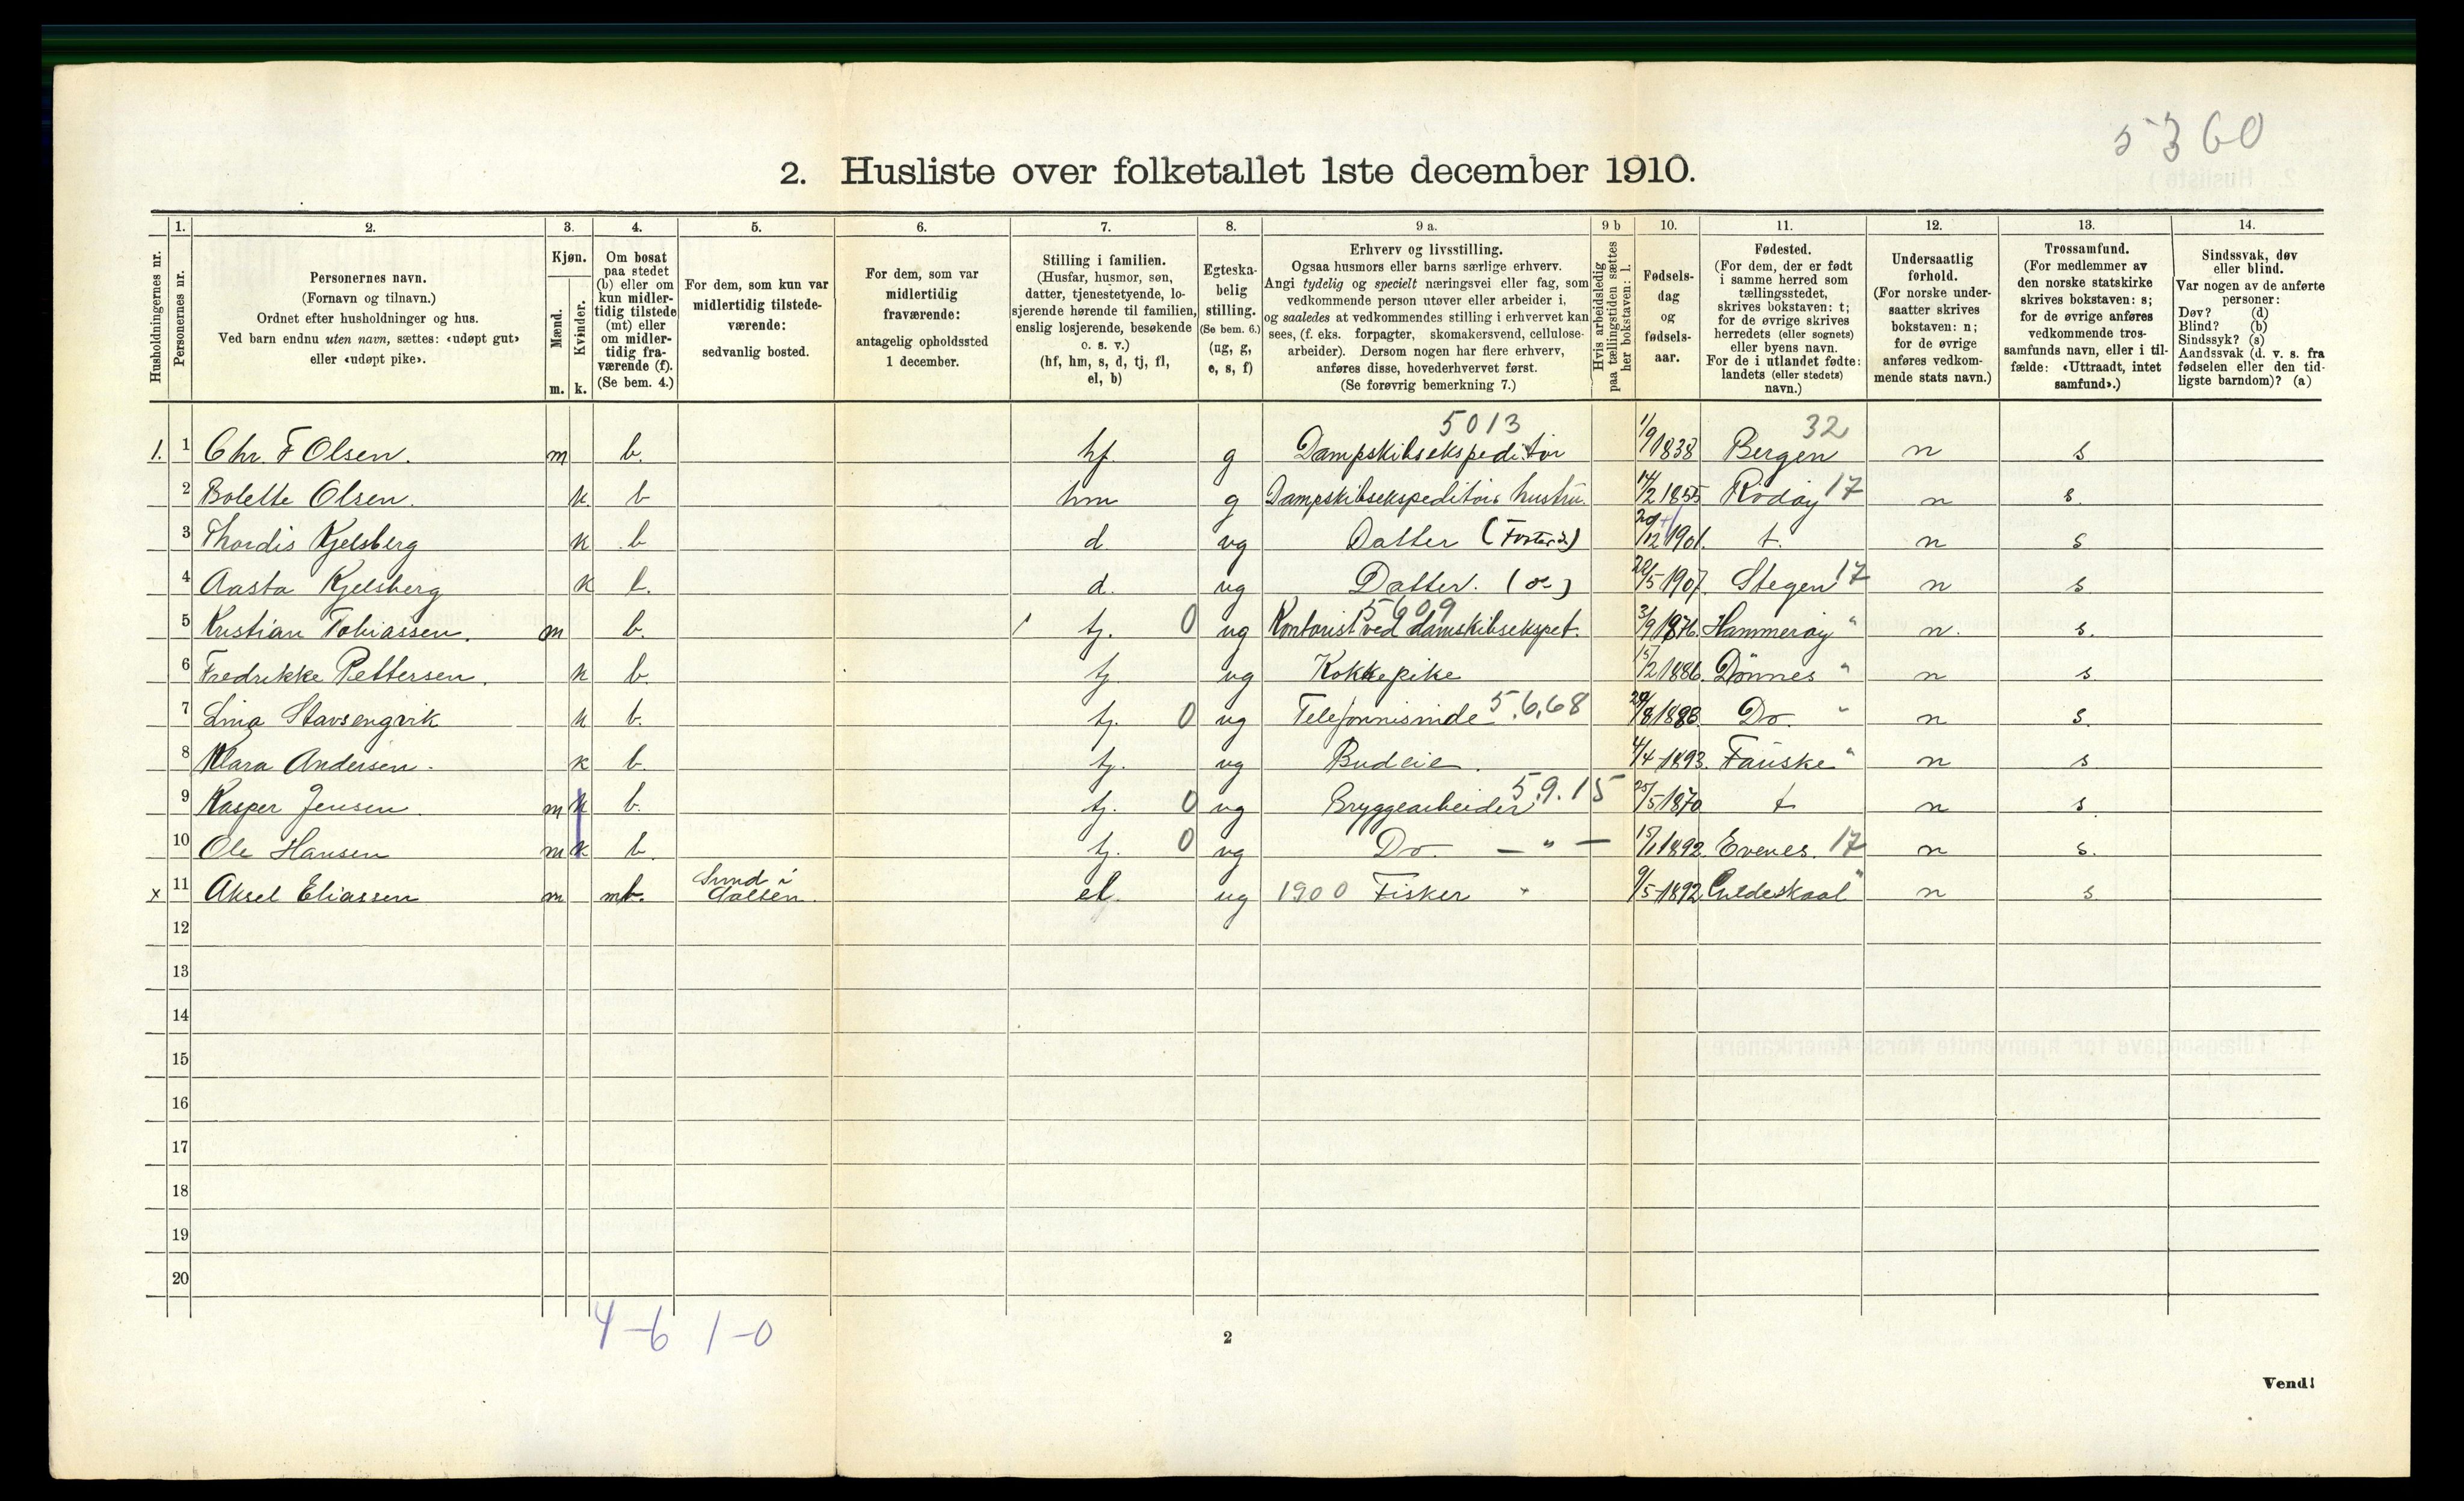 5360
2. Husliste over folketallet 1ste december 1910.
Husholdningernes nr.
1.
Personernes nr.
2.
Personernes navn.
(Fornavn og tilnavn.)
Ordnet efter husholdninger og hus.
Ved barn endnu uten navn, sættes: «udøpt gut»
eller «udøpt pike».
3.
Kjøn.
Mænd.
Kvinder.
m. k.
4.
Om bosat
paa stedet
(b) eller om
kun midler-
tidig tilstede
(mt) eller
om midler-
tidig fra-
værende (f).
(Se bem. 4.)
5.
For dem, som kun var
midlertidig tilstede-
værende:
sedvanlig bosted.
6.
For dem, som var
midlertidig
fraværende:
antagelig opholdssted
1 december.
7.
Stilling i familien.
(Husfar, husmor, søn,
datter, tjenestetyende, lo-
sjerende hørende til familien,
enslig losjerende, besøkende
o. s. v.)
(hf, hm, s, d, tj, fl,
el, b)
8.
Egteska-
belig
stilling.
(Se bem. 6.)
(ug, g,
e, s, f)
9 a.
Erhverv og livsstilling.
Ogsaa husmors eller barns særlige erhverv.
Angi tydelig og specielt næringsvei eller fag, som
vedkommende person utøver eller arbeider i,
og saaledes at vedkommendes stilling i erhvervet kan
sees, (f. eks. forpagter, skomakersvend, cellulose-
arbeider). Dersom nogen har flere erhverv,
anføres disse, hovederhvervet først.
(Se forøvrig bemerkning 7.)
9 b
Hvis arbeidsledig
paa tællingstiden sættes
her bokstaven: l.
10.
Fødsels-
dag
og
fødsels-
aar.
11.
Fødested.
(For dem, der er født
i samme herred som
tællingsstedet,
skrives bokstaven: t;
for de øvrige skrives
herredets (eller sognets)
eller byens navn.
For de i utlandet fødte:
landets (eller stedets)
navn.)
12.
Undersaatlig
forhold.
(For norske under-
saatter skrives
bokstaven: n;
for de øvrige
anføres vedkom-
mende stats navn.)
13.
Trossamfund.
(For medlemmer av
den norske statskirke
skrives bokstaven: s;
for de øvrige anføres
vedkommende tros-
samfunds navn, eller i til-
fælde: «Uttraadt, intet
samfund».)
14.
Sindssvak, døv
eller blind.
Var nogen av de anførte
personer:
Døv? (d)
Blind? (b)
Sindssyk? (s)
Aandssvak (d. v. s. fra
fødselen eller den tid-
ligste barndom)? (a)
5013 32
1. 1 Chr. F Olsen. m b. hf g Dampskibsekspeditør 1/9 1838 Bergen n s
2 Bolette Olsen. k. b hm g Dampskibsekspeditørs hustru. 14/2 1855 Rödöy 17 n s.
3 Thordis Kjelsberg k b d. ug Datter (Foster d.) 20/12 1901. t. n s
4 Aasta Kjelsberg k b. d. ug Datter. (do) 20/5 1907. Stegen 17 n s
5609
5 Kristian Tobiassen. m b. 1 tj. 0 ug Kontorist ved damskibsekspet. 3/9 1876. Hammeröy " n. s.
6 Fredrikke Pettersen. k b. tj ug Kokkepike 15/2 1886. Dönnes " n s
7 Lina Stavsengvik k b. tj. 0 ug Telefonnistinde 5.6.68 29/8 1888 Do. " n s.
8 Klara Andersen. k b. tj. ug Budeie. 4/4 1893. Fauske " n s
9 Kasper Jensen. m k b. tj. 0 ug Bryggearbeider 5.9.15 25/5 1870 t n s
10 Ole Hansen m k b. tj. 0 ug Do. — " — 15/1 1892. Evenes. 17 n s.
Sund i
x 11 Aksel Eliassen m mt. Salten. el. ug 1900 Fisker 9/5 1892 Gildeskaal " n s
12
13
14
15
16
17
18
19
20
4-6 1-0
2
Vend!